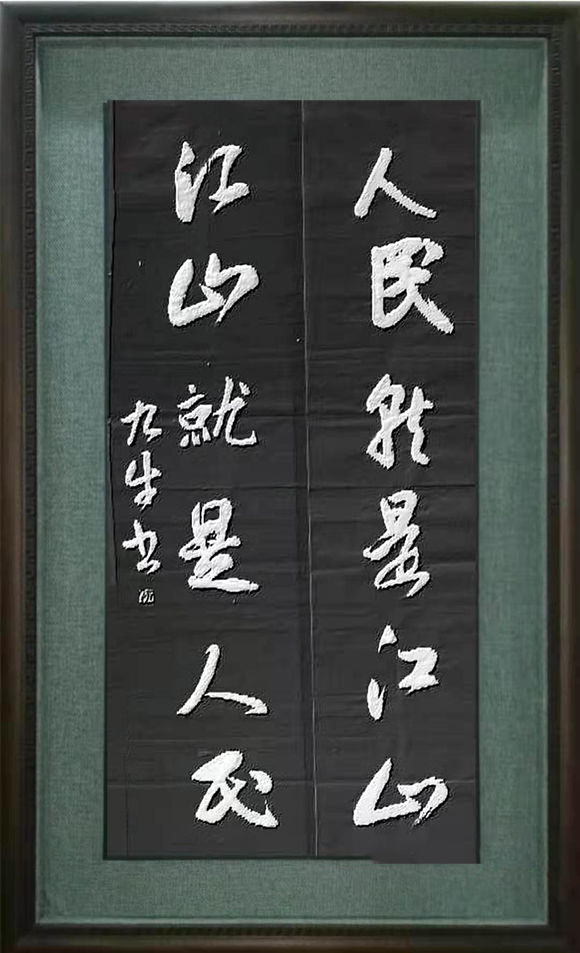 人民就是江山
江山就是人民
九生书